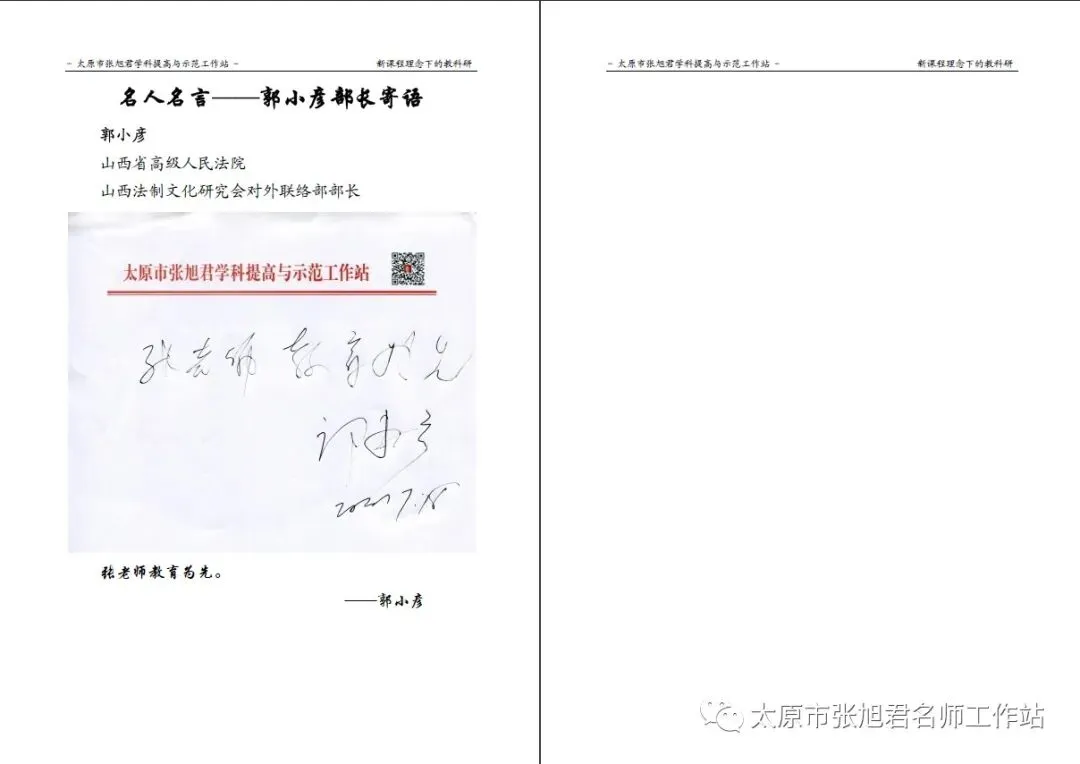 - 太原市张旭君学科提高与示范工作站 -
新课程理念下的教科研
名人名言——郭小彦部长寄语
郭小彦
山西省高级人民法院
山西法制文化研究会对外联络部部长
太原市张旭君学科提高与示范工作站
张老师 教育为先
郭小彦
张老师教育为先。
——郭小彦
- 太原市张旭君学科提高与示范工作站 -
新课程理念下的教科研
太原市张旭君名师工作站